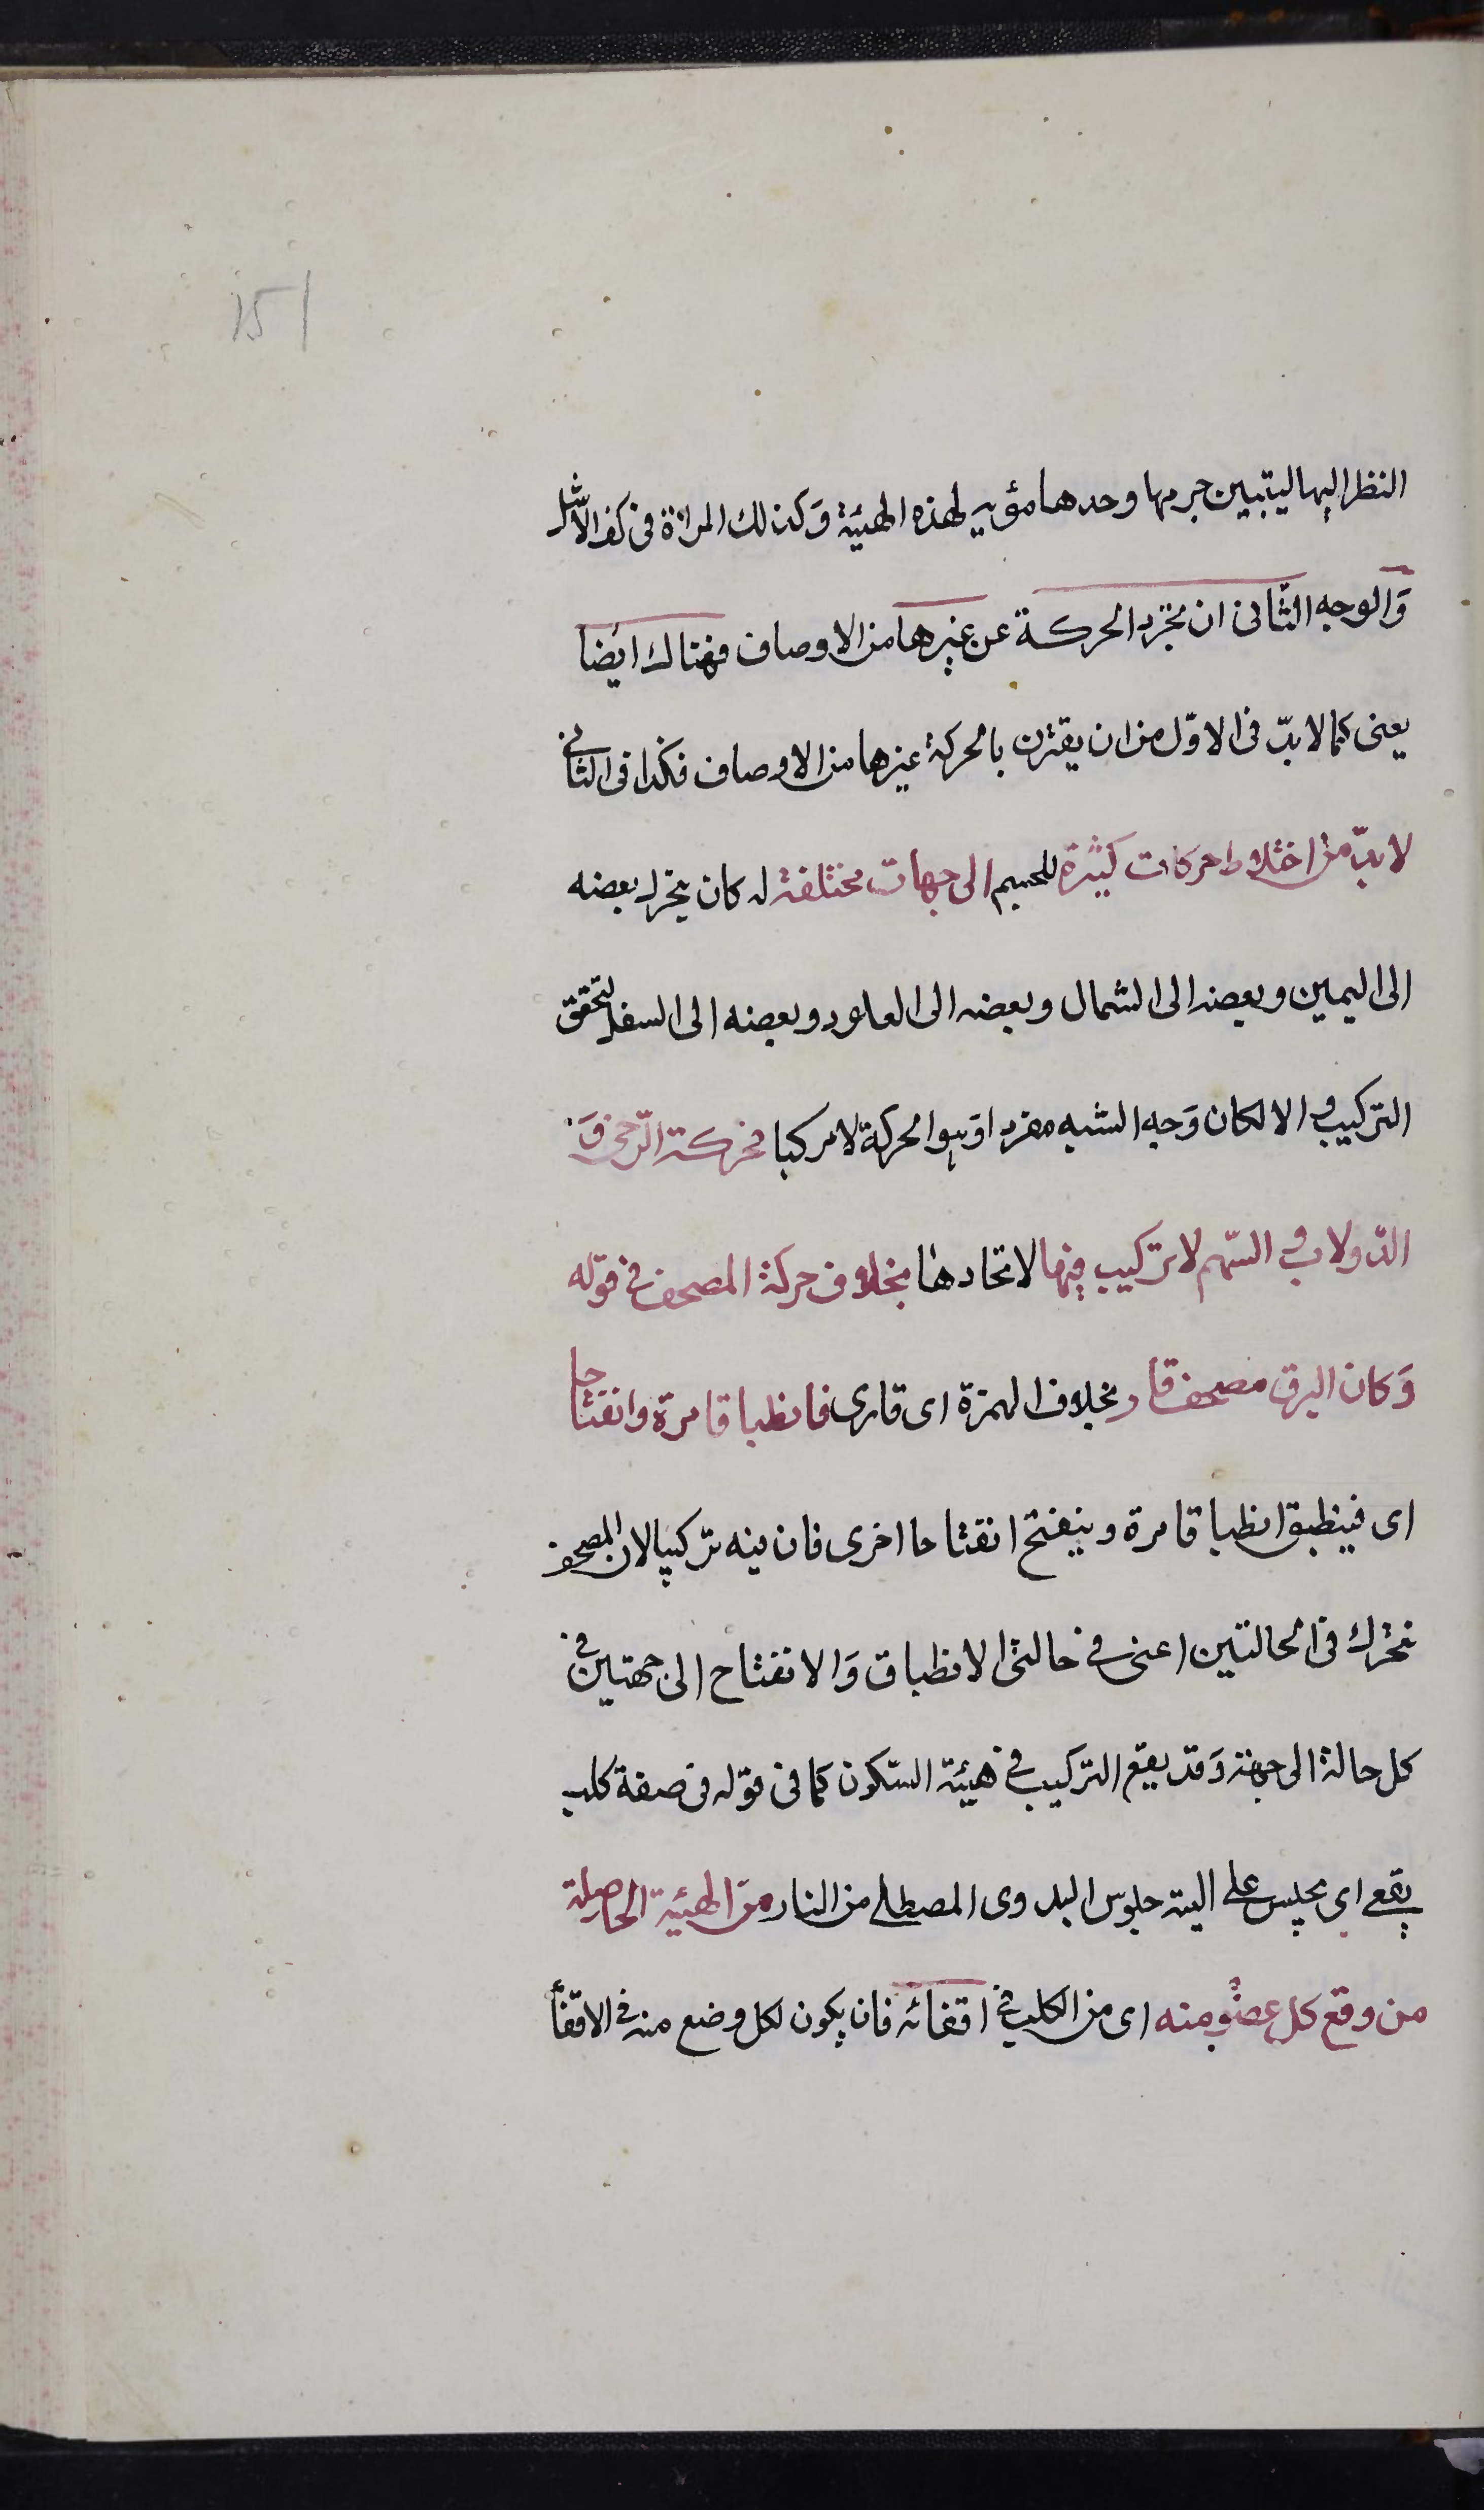 151
النظر اليها ليتبين جرمها وحدها مؤديه لهذه الهيئة وكذلك المرآة فى كف الاشل
والوجه الثانى ان تجرد الحركة عن غيرها من الاوصاف فهناك ايضا
يعنى كما لا بدّ فى الاوّل من ان يقترن بالحركة غيرها من الاوصاف فكذا فى الثانى
لا بدّ من اختلاط حركات كثيرة للجسم الى جهات مختلفة له كان يتحرك بعضه
الى اليمين وبعضه الى الشمال وبعضه الى العلو وبعضه الى السفل ليتحقق
التركيب والا لكان وجه الشبه مفردا وهو الحركة لا مركبا فحركة الرحى و
الدولاب والسّهم لا تركيب فيها لاتحادها بخلاف حركة المصحف فى قوله
وكان البرق مصحف قار بخلاف الهمزة اى قارى فانطباقا مرة وانفتاحا
اى فينطبق انطباقا مرة وينفتح انفتاحا اخرى فان فيه تركيبا لان المصحف
تحرك فى الحالتين اعنى فى حالتى الانطباق والانفتاح الى جهتين فى
كل حالة الى جهة وقد يقع التركيب فى هيئة السّكون كما فى قوله فى صفة كلب
يقعى اى يجلس على اليته جلوس البدوى المصطلى من النار من الهيئة الحاصلة
من وقع كل عضو منه اى من الكلب فى اقعائه فان يكون لكل وضع منه فى الاقعا